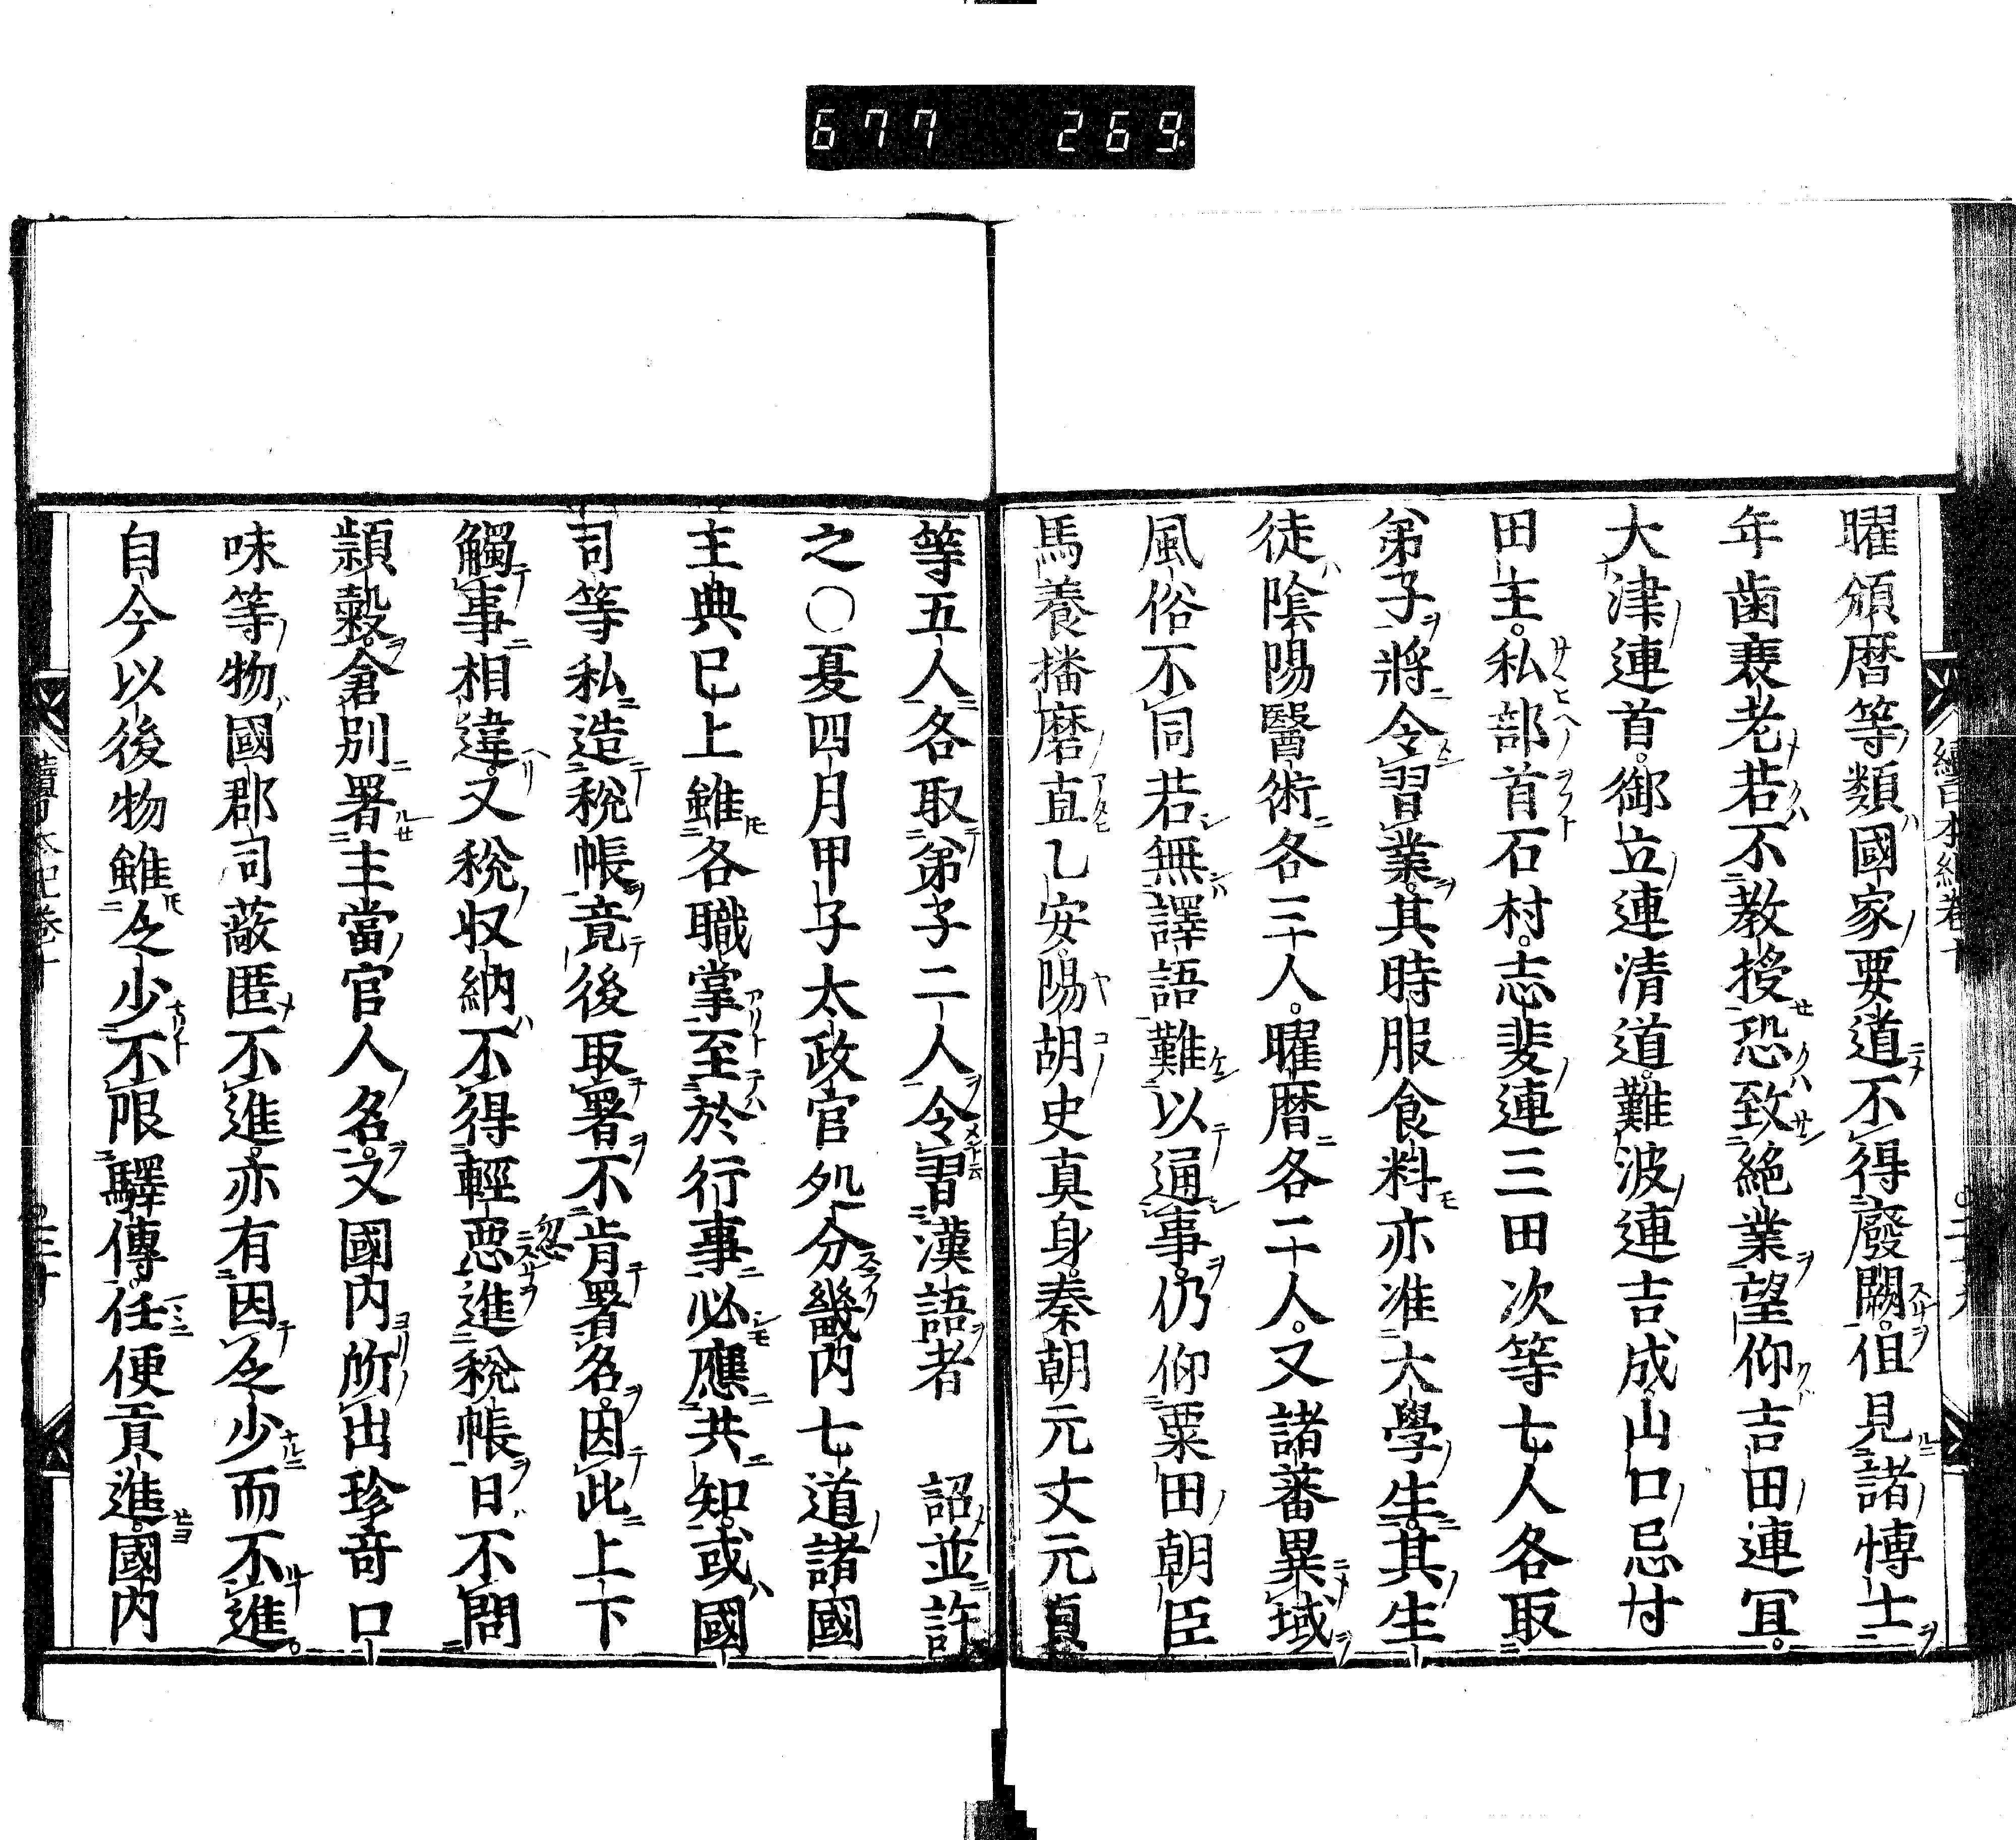 677 269
曜頒暦等類國家要道不得廢闕但見諸博士
年歯衰老若不教授恐致絶業望仰吉田連冝
大津連首御立連清道難波連吉成山口忌寸
田主私部首石村志斐連三田次等七人各取
弟子將令習業其時服食料亦准大學生其生
徒陰陽醫術各三十人曜暦各二十人又諸蕃異域
風俗不同若無譯語難以通事仍仰粟田朝臣
馬養播磨直乙安陽胡史真身秦朝元文元貞
等五人各取弟子二人令習漢語者 詔並許
之〇夏四月甲子太政官処分畿内七道諸國
主典已上雖各職掌至於行事必應共知或國
司等私造税帳竟後取署不肯署名因此上下
觸事相違又税収納不得輕悪進税帳日不問
頴穀倉別署主當官人名又國内所出珍竒口
味等物國郡司蔽匿不進亦有因乏少而不進
自今以後物雖乏少不限驛傳任便貢進國内